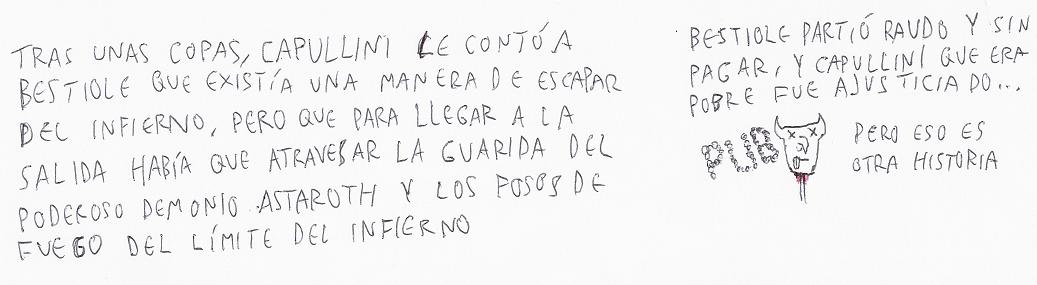 TRAS UNAS COPAS, CAPULLINI LE CONTÓ A
BESTIOLE QUE EXISTÍA UNA MANERA DE ESCAPAR
DEL INFIERNO, PERO QUE PARA LLEGAR A LA
SALIDA HABÍA QUE ATRAVESAR LA GUARIDA DEL
PODEROSO DEMONIO ASTAROTH Y LOS POSOS DE
FUEGO DEL LÍMITE DEL INFIERNO
BESTIOLE PARTIÓ RAUDO Y SIN
PAGAR, Y CAPULLINI QUE ERA
POBRE FUE AJUSTICIADO...
PUB
PERO ESO ES
OTRA HISTORIA